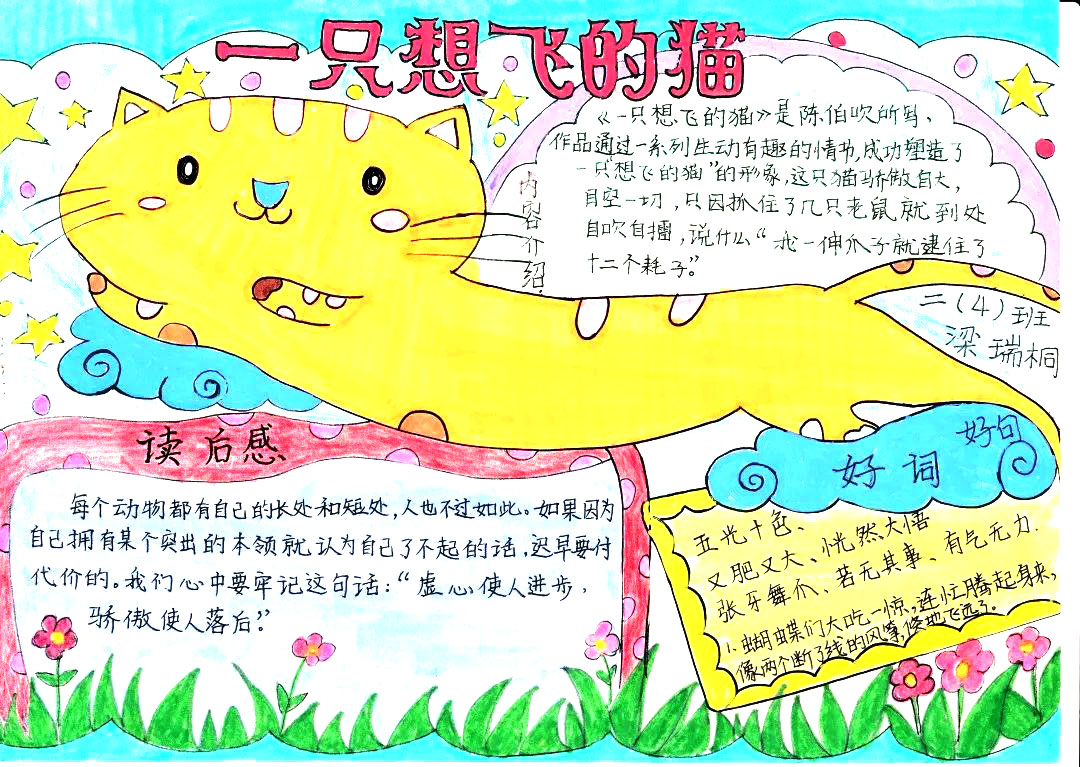 一只想飞的猫
内容介绍:
《一只想飞的猫》是陈伯吹所写、
作品通过一系列生动有趣的情节,成功塑造了
一只“想飞的猫”的形象,这只猫骄傲自大,
目空一切,只因抓住了几只老鼠就到处
自吹自擂,说什么“我一伸爪子就逮住了
十二个耗子。”
二(4)班
梁瑞桐
读后感
每个动物都有自己的长处和短处,人也不过如此。如果因为
自己拥有某个突出的本领就认为自己了不起的话,迟早要付
代价的。我们心中要牢记这句话:“虚心使人进步,
骄傲使人落后。”
好词
好句
五光十色、
又肥又大、恍然大悟
张牙舞爪、若无其事、有气无力.
1.蝴蝶们大吃一惊,连忙腾起身来,
像两个断了线的风筝,倏地飞远了。